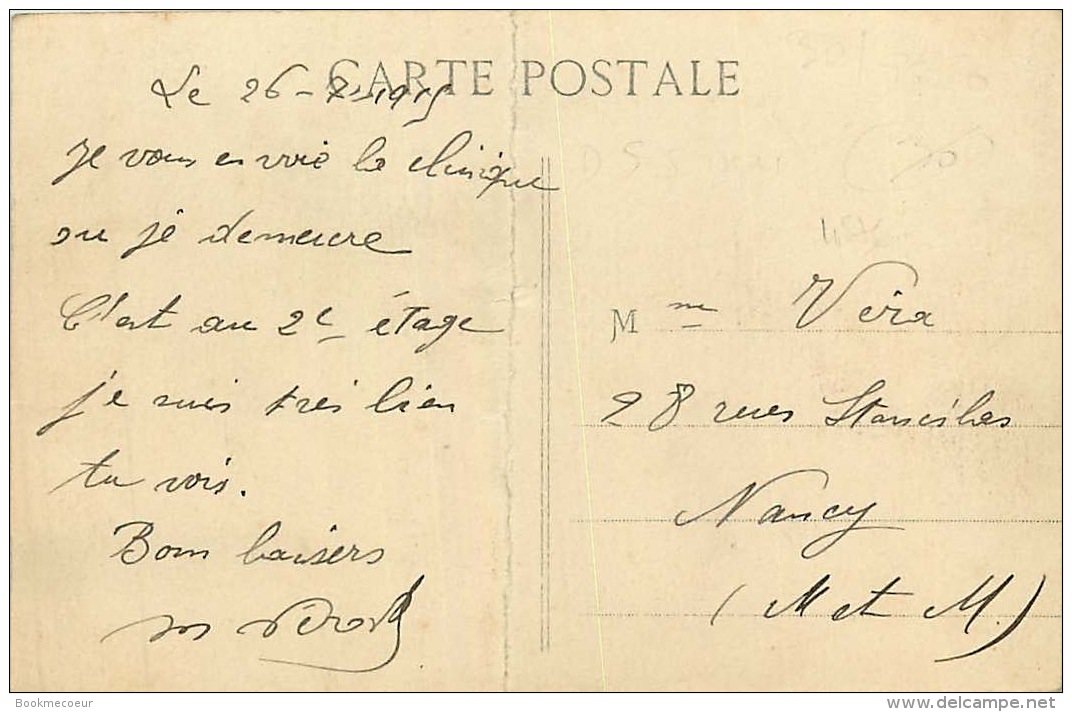 CARTE POSTALE
Le 26-7-1915
je vous envoie la clinique
ou je demeure
C'est au 2e étage
je suis très bien
tu vois.
Bons baisers
Mme Véra
28 rues Stanislas
Nancy
(M et M.)
Bookmecoeur
www.delcampe.net